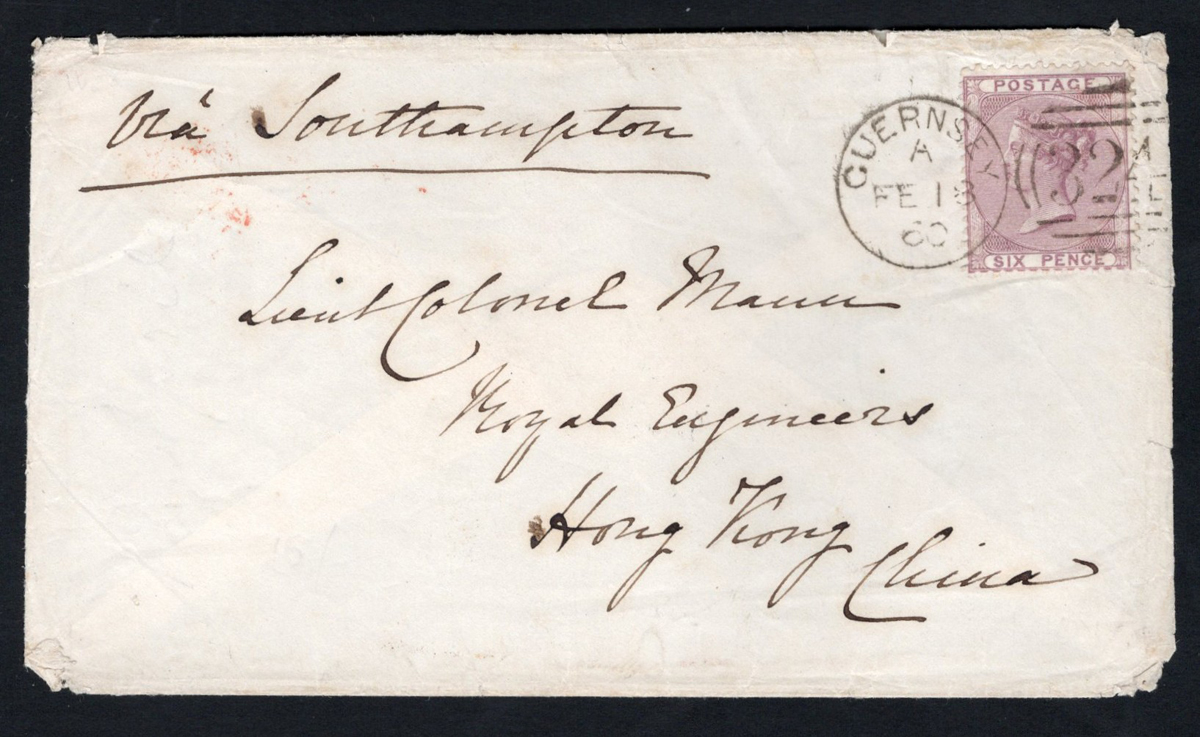 Viâ Southampton
POSTAGE
SIX PENCE
GUERNSEY
A
FE 18
60
322
Lieut Colonel Mann
Royal Engineers
Hong Kong
China